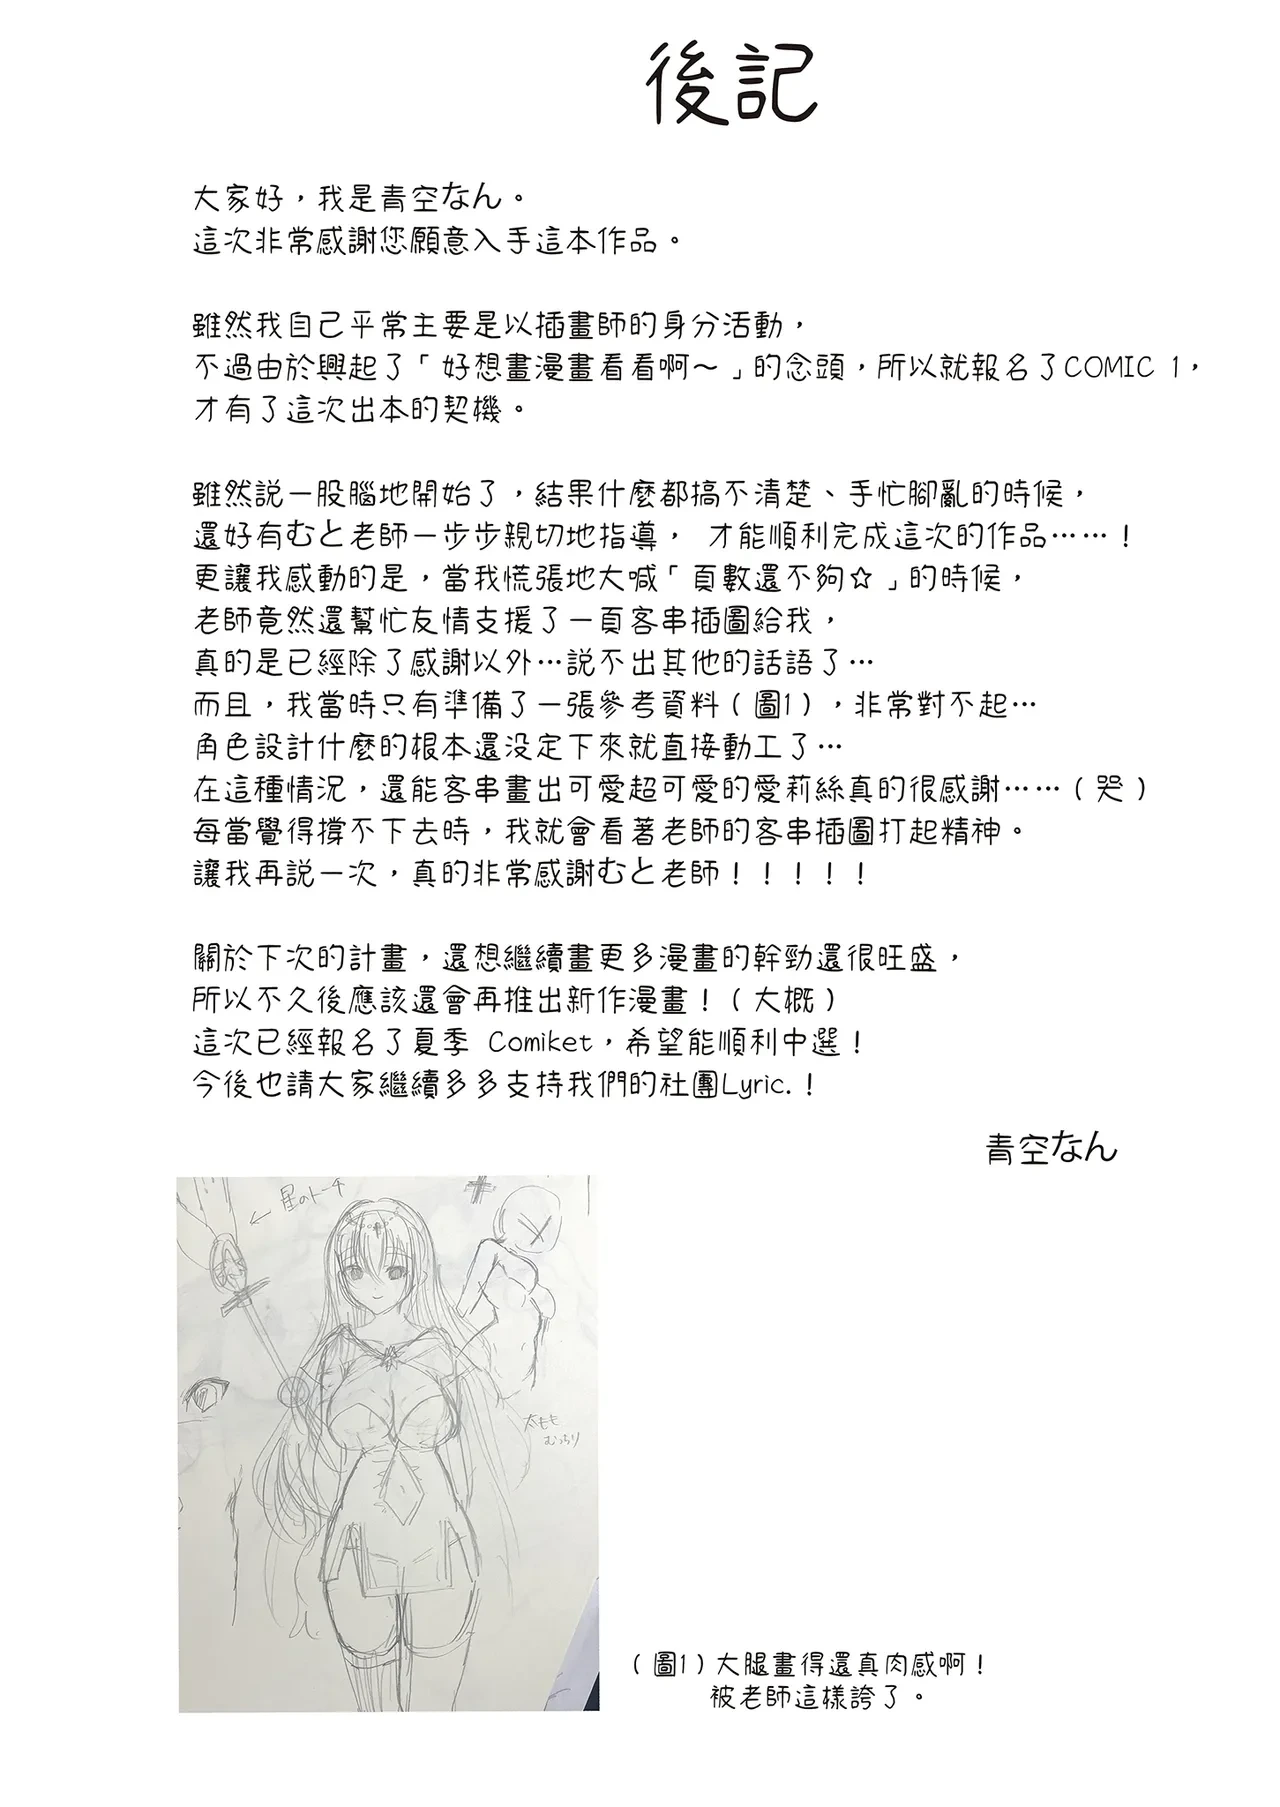 後記
大家好，我是青空なん。
這次非常感謝您願意入手這本作品。
雖然我自己平常主要是以插畫師的身分活動，
不過由於興起了「好想畫漫畫看看啊～」的念頭，所以就報名了COMIC 1，
才有了這次出本的契機。
雖然說一股腦地開始了，結果什麼都搞不清楚、手忙腳亂的時候，
還好有むと老師一步步親切地指導， 才能順利完成這次的作品……！
更讓我感動的是，當我慌張地大喊「頁數還不夠☆」的時候，
老師竟然還幫忙友情支援了一頁客串插圖給我，
真的是已經除了感謝以外…說不出其他的話語了…
而且，我當時只有準備了一張參考資料（圖1），非常對不起…
角色設計什麼的根本還沒定下來就直接動工了…
在這種情況，還能客串畫出可愛超可愛的愛莉絲真的很感謝……（哭）
每當覺得撐不下去時，我就會看著老師的客串插圖打起精神。
讓我再說一次，真的非常感謝むと老師！！！！！
關於下次的計畫，還想繼續畫更多漫畫的幹勁還很旺盛，
所以不久後應該還會再推出新作漫畫！（大概）
這次已經報名了夏季 Comiket，希望能順利中選！
今後也請大家繼續多多支持我們的社團Lyric.！
青空なん
星のトーチ
太もも
むっちり
（圖1）大腿畫得還真肉感啊！
被老師這樣誇了。